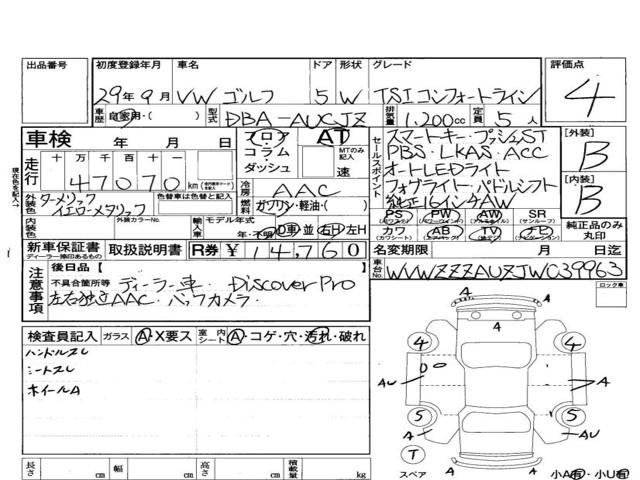 出品番号
初度登録年月 車名 ドア 形状 グレード 評価点
29年9月 VW ゴルフ 5 W TSI コンフォートライン 4
車歴 自家用・( ) 型式 DBA-AUCJZ 排気量 1,200cc 定員 5人
車検 年 月 日
フロア・コラム・ダッシュ AT MTのみ記入 速
セールスポイント
スマートキー・プッシュST
PBS・LKAS・ACC
オートLEDライト
フォグライト・パドルシフト
純正16インチAW
[外装] B
[内装] B
走行 十万千百十一
47070 km
冷房 AAC
燃料 ガソリン・軽油・( )
外装色 ターメリック イエローメタリック 色替車は色替と記入
内装色 外装カラーNo.
輸入車 モデル年式 年・不明 D車・並 右H・左H
PS PW AW SR
カワ AB TV ナビ
純正品のみ丸印
新車保証書 ディーラー捺印あるもの 取扱説明書 R券 ¥14,760
名変期限 月 日迄
車台No. WVWZZZAUZJW039963
注意事項
後日品【
不具合箇所等 ディーラー車・Discover Pro
左右独立AAC・バックカメラ・
ロック車
検査員記入 ガラス A・X要ス 室内シート A・コゲ・穴・汚れ・破れ
ハンドルスレ
シートスレ
ホイールA
A
4 4
AU A
5 5
A AU
T
スペア A
小A有・小U有
長さ cm 幅 cm 高さ cm 積載量 kg
現在色を記入→